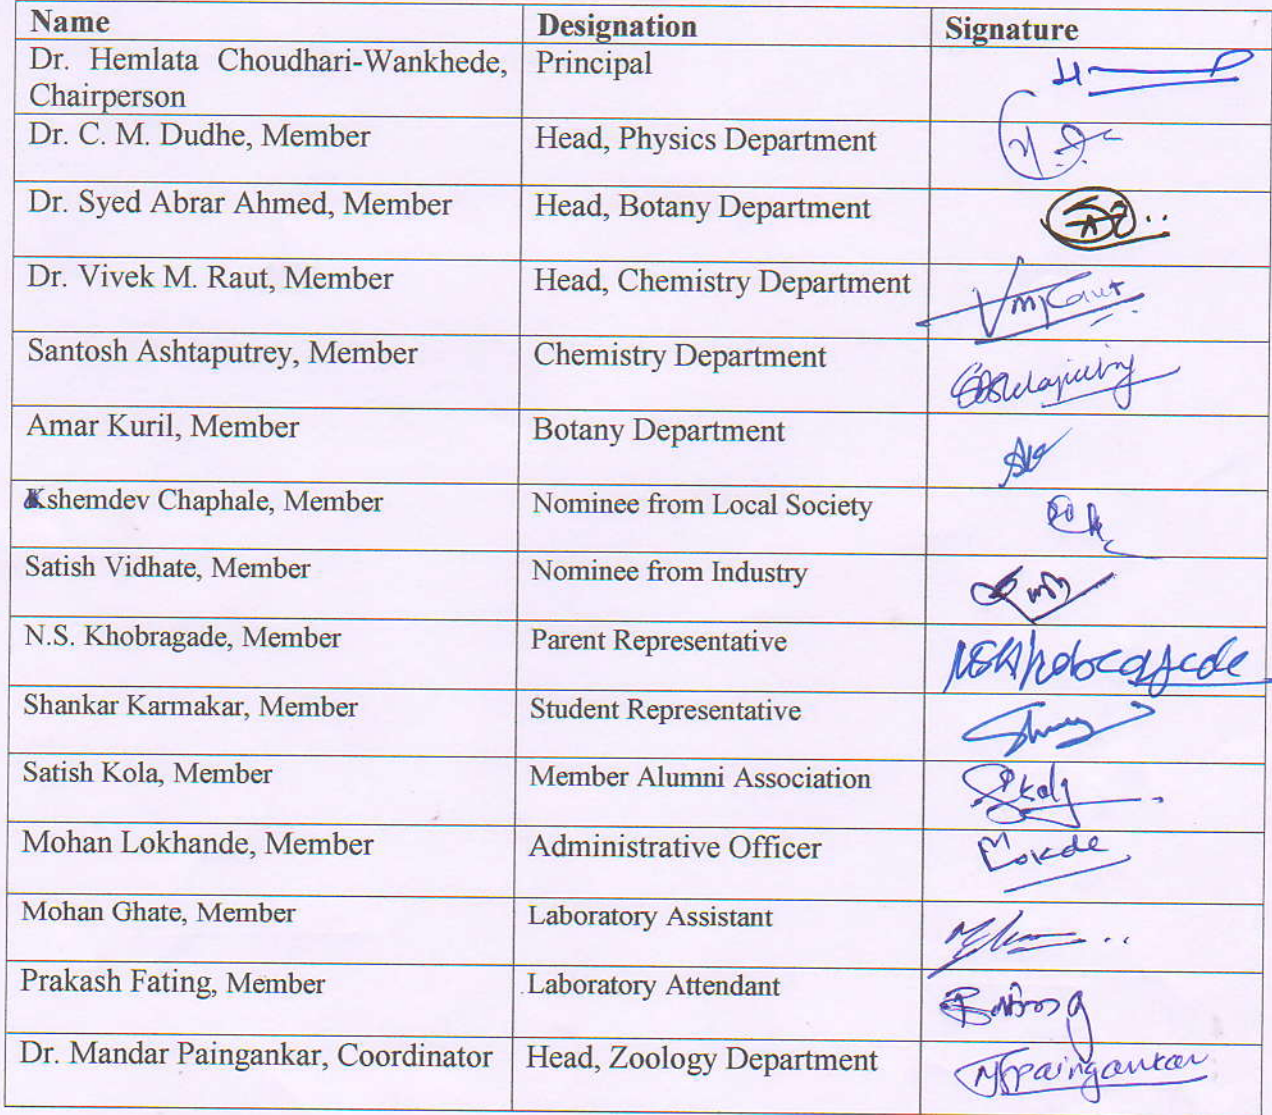 Name Designation Signature
Dr. Hemlata Choudhari-Wankhede, Principal
Chairperson
Dr. C. M. Dudhe, Member Head, Physics Department
Dr. Syed Abrar Ahmed, Member Head, Botany Department
Dr. Vivek M. Raut, Member Head, Chemistry Department
Santosh Ashtaputrey, Member Chemistry Department
Amar Kuril, Member Botany Department
Kshemdev Chaphale, Member Nominee from Local Society
Satish Vidhate, Member Nominee from Industry
N.S. Khobragade, Member Parent Representative NSKhobragade
Shankar Karmakar, Member Student Representative
Satish Kola, Member Member Alumni Association
Mohan Lokhande, Member Administrative Officer
Mohan Ghate, Member Laboratory Assistant
Prakash Fating, Member Laboratory Attendant
Dr. Mandar Paingankar, Coordinator Head, Zoology Department MSpaingankar